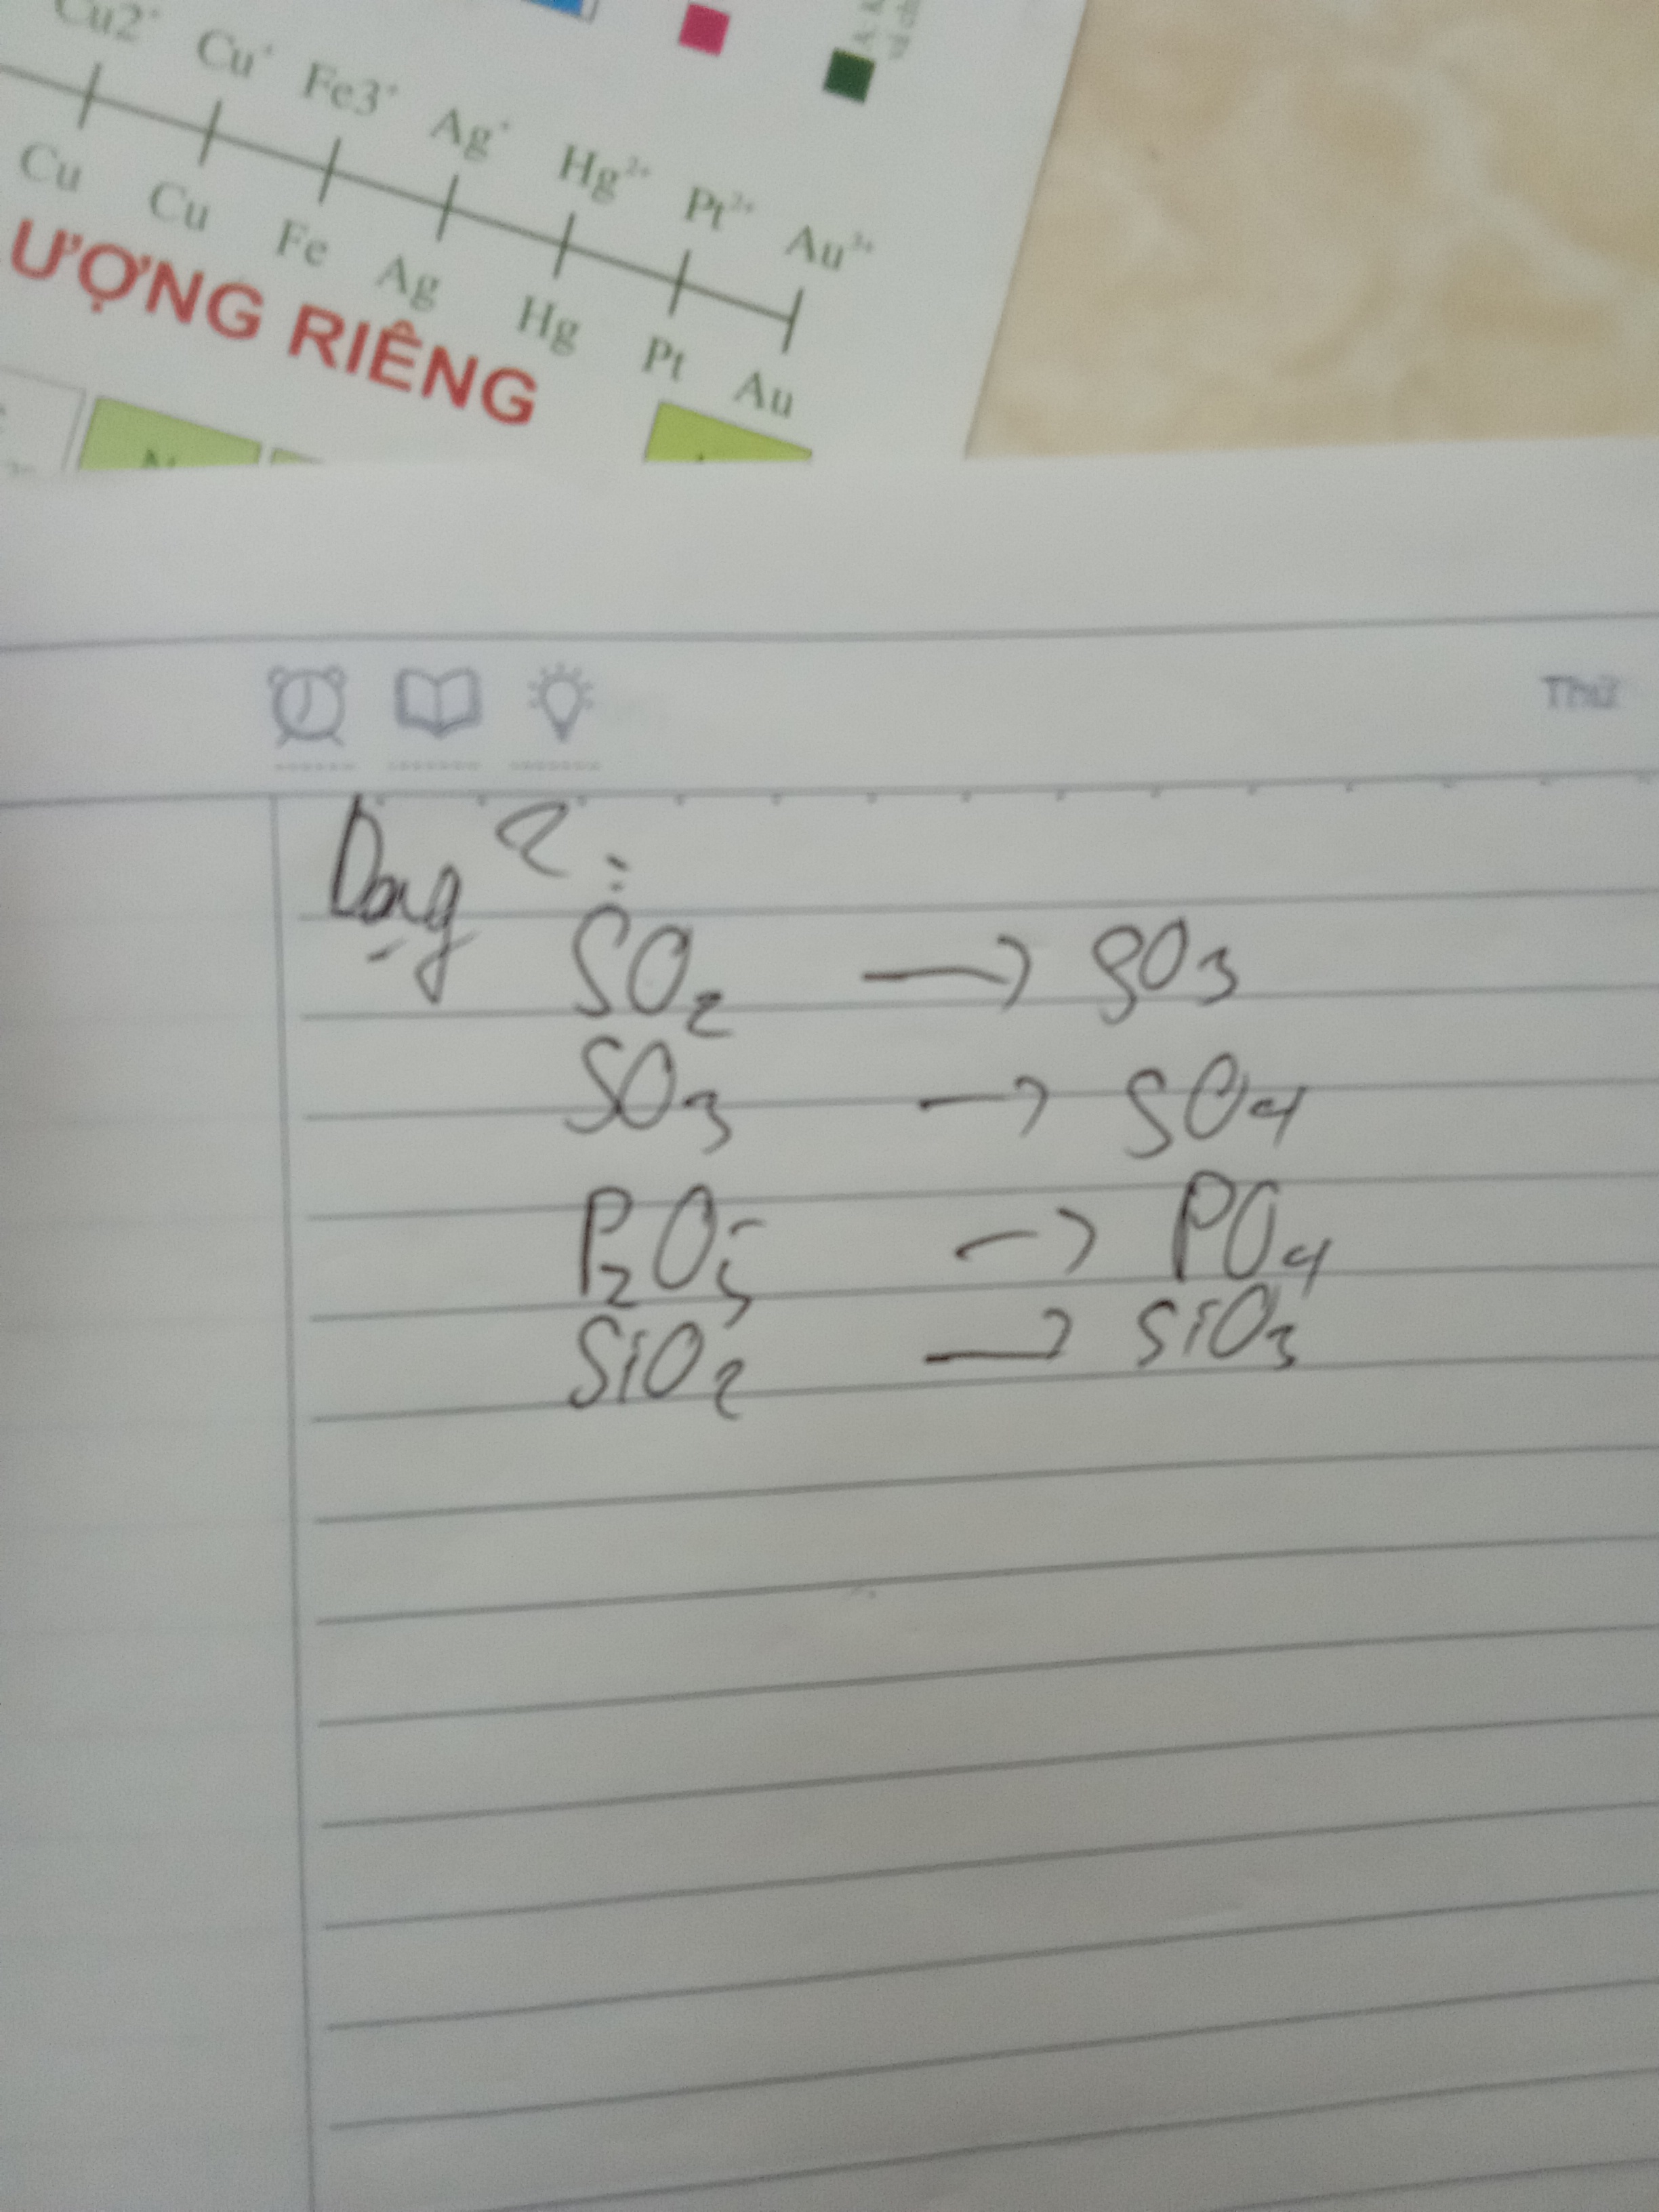 Cu2⁺ Cu⁺ Fe3⁺ Ag⁺ Hg²⁺ Pt²⁺ Au³⁺
Cu Cu Fe Ag Hg Pt Au
ƯỢNG RIÊNG
Thứ
Dạng 2:
SO₂ → SO₃
SO₃ → SO₄
P₂O₅ → PO₄
SiO₂ → SiO₃